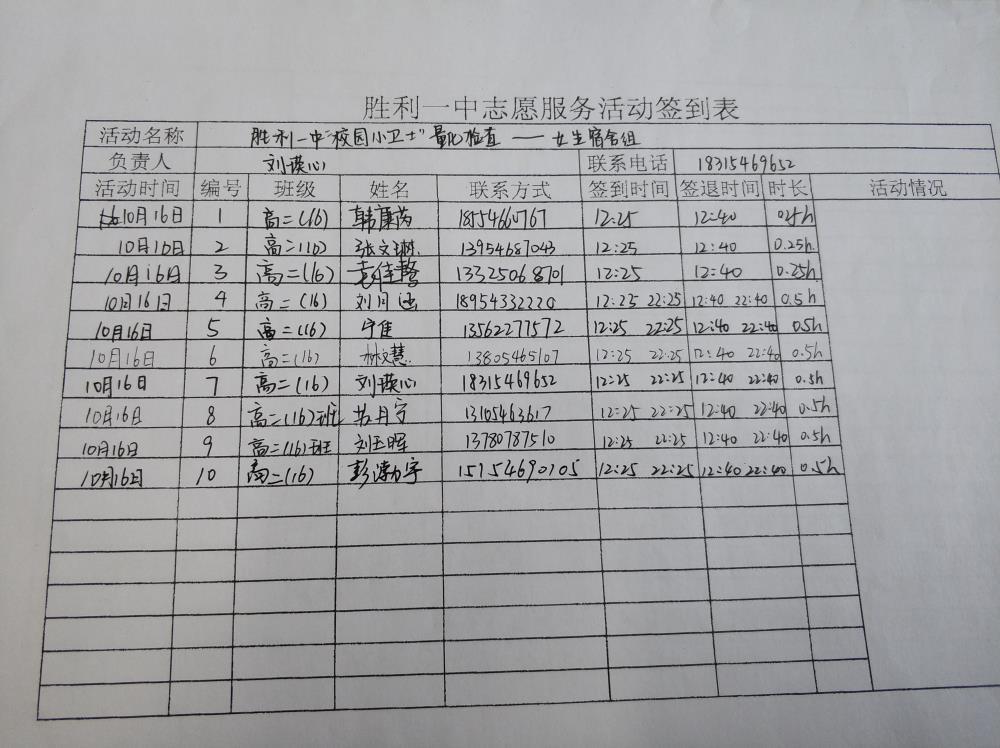 胜利一中志愿服务活动签到表
活动名称 胜利一中"校园小卫士"量化检查——女生宿舍组
负责人 刘瑛心 联系电话 18315469652
活动时间 编号 班级 姓名 联系方式 签到时间 签退时间 时长 活动情况
10月16日 1 高二(16) 12:25 12:40 0.25h
10月16日 2 高二(16) 13954687043 12:25 12:40 0.25h.
10月16日 3 高二(16) 13325068701 12:25 12:40 0.25h
10月16日 4 高二(16) 刘月 18954332220 12:25 22:25 12:40 22:40 0.5h
10月16日 5 高二(16) 宁佳 13562277572 12:25 22:25 12:40 22:40 0.5h
10月16日 6 高二(16) 林文慧 13805465107 12:25 22:25 12:40 22:40 0.5h
10月16日 7 高二(16) 刘瑛心 18315469652 12:25 22:25 12:40 22:40 0.5h
10月16日 8 高二(16)班 苏月宁 13105463617 12:25 22:25 12:40 22:40 0.5h
10月16日 9 高二(16)班 刘玉晖 13780787510 12:25 22:25 12:40 22:40 0.5h
10月16日 10 高二(16) 15154690105 12:25 22:25 12:40 22:40 0.5h